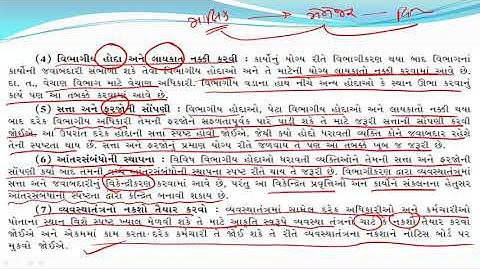 માલિક → મેનેજર
(4) વિભાગીય હોદ્દા અને લાયકાત નક્કી કરવી : કાર્યોનું યોગ્ય રીતે વિભાગીકરણ થયા બાદ વિભાગના
કાર્યોની જવાબદારી સંભાળી શકે તેવા વિભાગીય હોદ્દાઓ અને તે માટેની યોગ્ય લાયકાતો નક્કી કરવામાં આવે છે.
દા. ત., વેચાણ વિભાગ માટે વેચાણ અધિકારી. વિભાગીય વડાના હાથ નીચે અન્ય હોદ્દાઓ કે સ્થાન ઊભા કરવાનું
કાર્ય પણ આ તબક્કે કરવામાં આવે છે.
(5) સત્તા અને ફરજોની સોંપણી : વિભાગીય હોદ્દાઓ, પેટા વિભાગીય હોદ્દાઓ અને લાયકાતો નક્કી થયા
બાદ દરેક વિભાગીય અધિકારી તેમની ફરજોને સફળતાપૂર્વક પાર પાડી શકે તે માટે જરૂરી સત્તાની સોંપણી કરવી
જોઈએ. આ ઉપરાંત દરેક હોદ્દાની સત્તા સ્પષ્ટ હોવી જોઈએ. જેથી કયો હોદ્દો ધરાવતી વ્યક્તિ કોને જવાબદાર રહેશે
તેની સ્પષ્ટતા થાય છે. સત્તા અને ફરજોનું પ્રમાણ યોગ્ય રીતે જળવાય તે પણ આ તબક્કે ખૂબ જ જરૂરી છે.
(6) આંતરસંબંધોની સ્થાપના : વિવિધ વિભાગીય હોદ્દાઓ ધરાવતી વ્યક્તિઓને તેમની સત્તા અને ફરજોની
સોંપણી કર્યા બાદ તેમના વચ્ચે આંતરસંબંધોની સ્થાપના સ્પષ્ટ રીતે થાય તે જરૂરી છે. વિભાગીકરણ દ્વારા વ્યવસ્થાતંત્રમાં
સત્તા અને જવાબદારીનું વિકેન્દ્રીકરણ કરવામાં આવે છે, પરંતુ આ વિકેન્દ્રિત પ્રવૃત્તિઓ અને કાર્યોને સંકલનના હેતુસર
આંતરસંબંધોની સ્થાપના દ્વારા કેન્દ્રિત બનાવી શકાય છે.
(7) વ્યવસ્થાતંત્રનો નકશો તૈયાર કરવો : વ્યવસ્થાતંત્રમાં સામેલ દરેક અધિકારીઓ અને કર્મચારીઓ
પોતાના સ્થાન વિશે સ્પષ્ટ ખ્યાલ મેળવી શકે તે માટે આકૃતિ સ્વરૂપે વ્યવસ્થા તંત્રનો ચાર્ટ કે નકશો તૈયાર કરવો
જોઈએ અને એકમમાં કામ કરતા દરેક કર્મચારી તે જોઈ શકે તે રીતે વ્યવસ્થાતંત્રના નકશાને નોટિસ બોર્ડ પર
મુકવો જોઈએ.